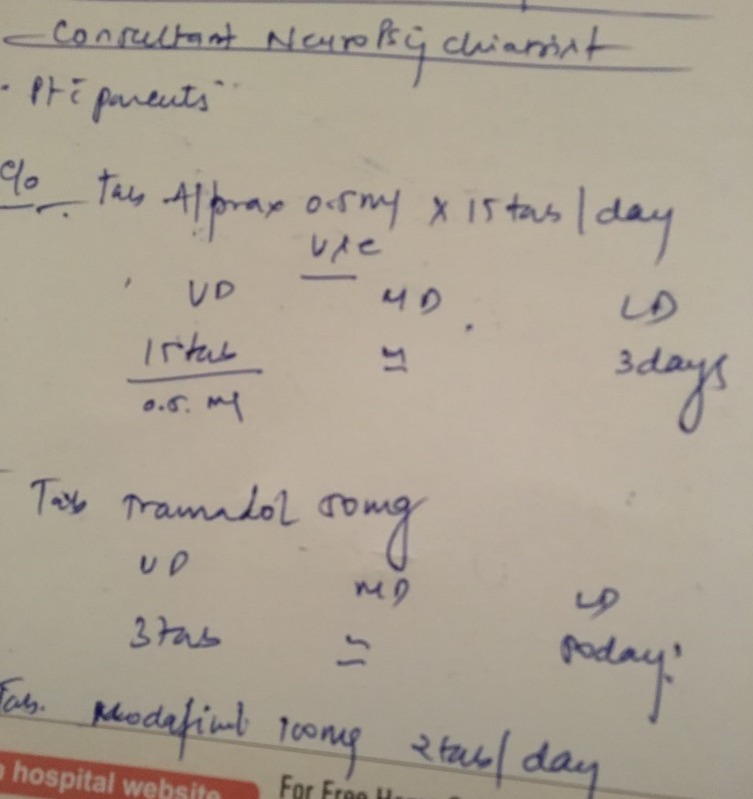 Consultant NeuroPsychiatrist
. Pt c̄ parents
c/o Tab Alprax 0.5mg x 15 tab/day
use
UD MD LD
15tab ≃ 3days
0.5. mg
Tab Tramadol 50mg
UD MD LD
3tab ≃
Tab. Modafinil 100mg 2tab/day
hospital website For Free